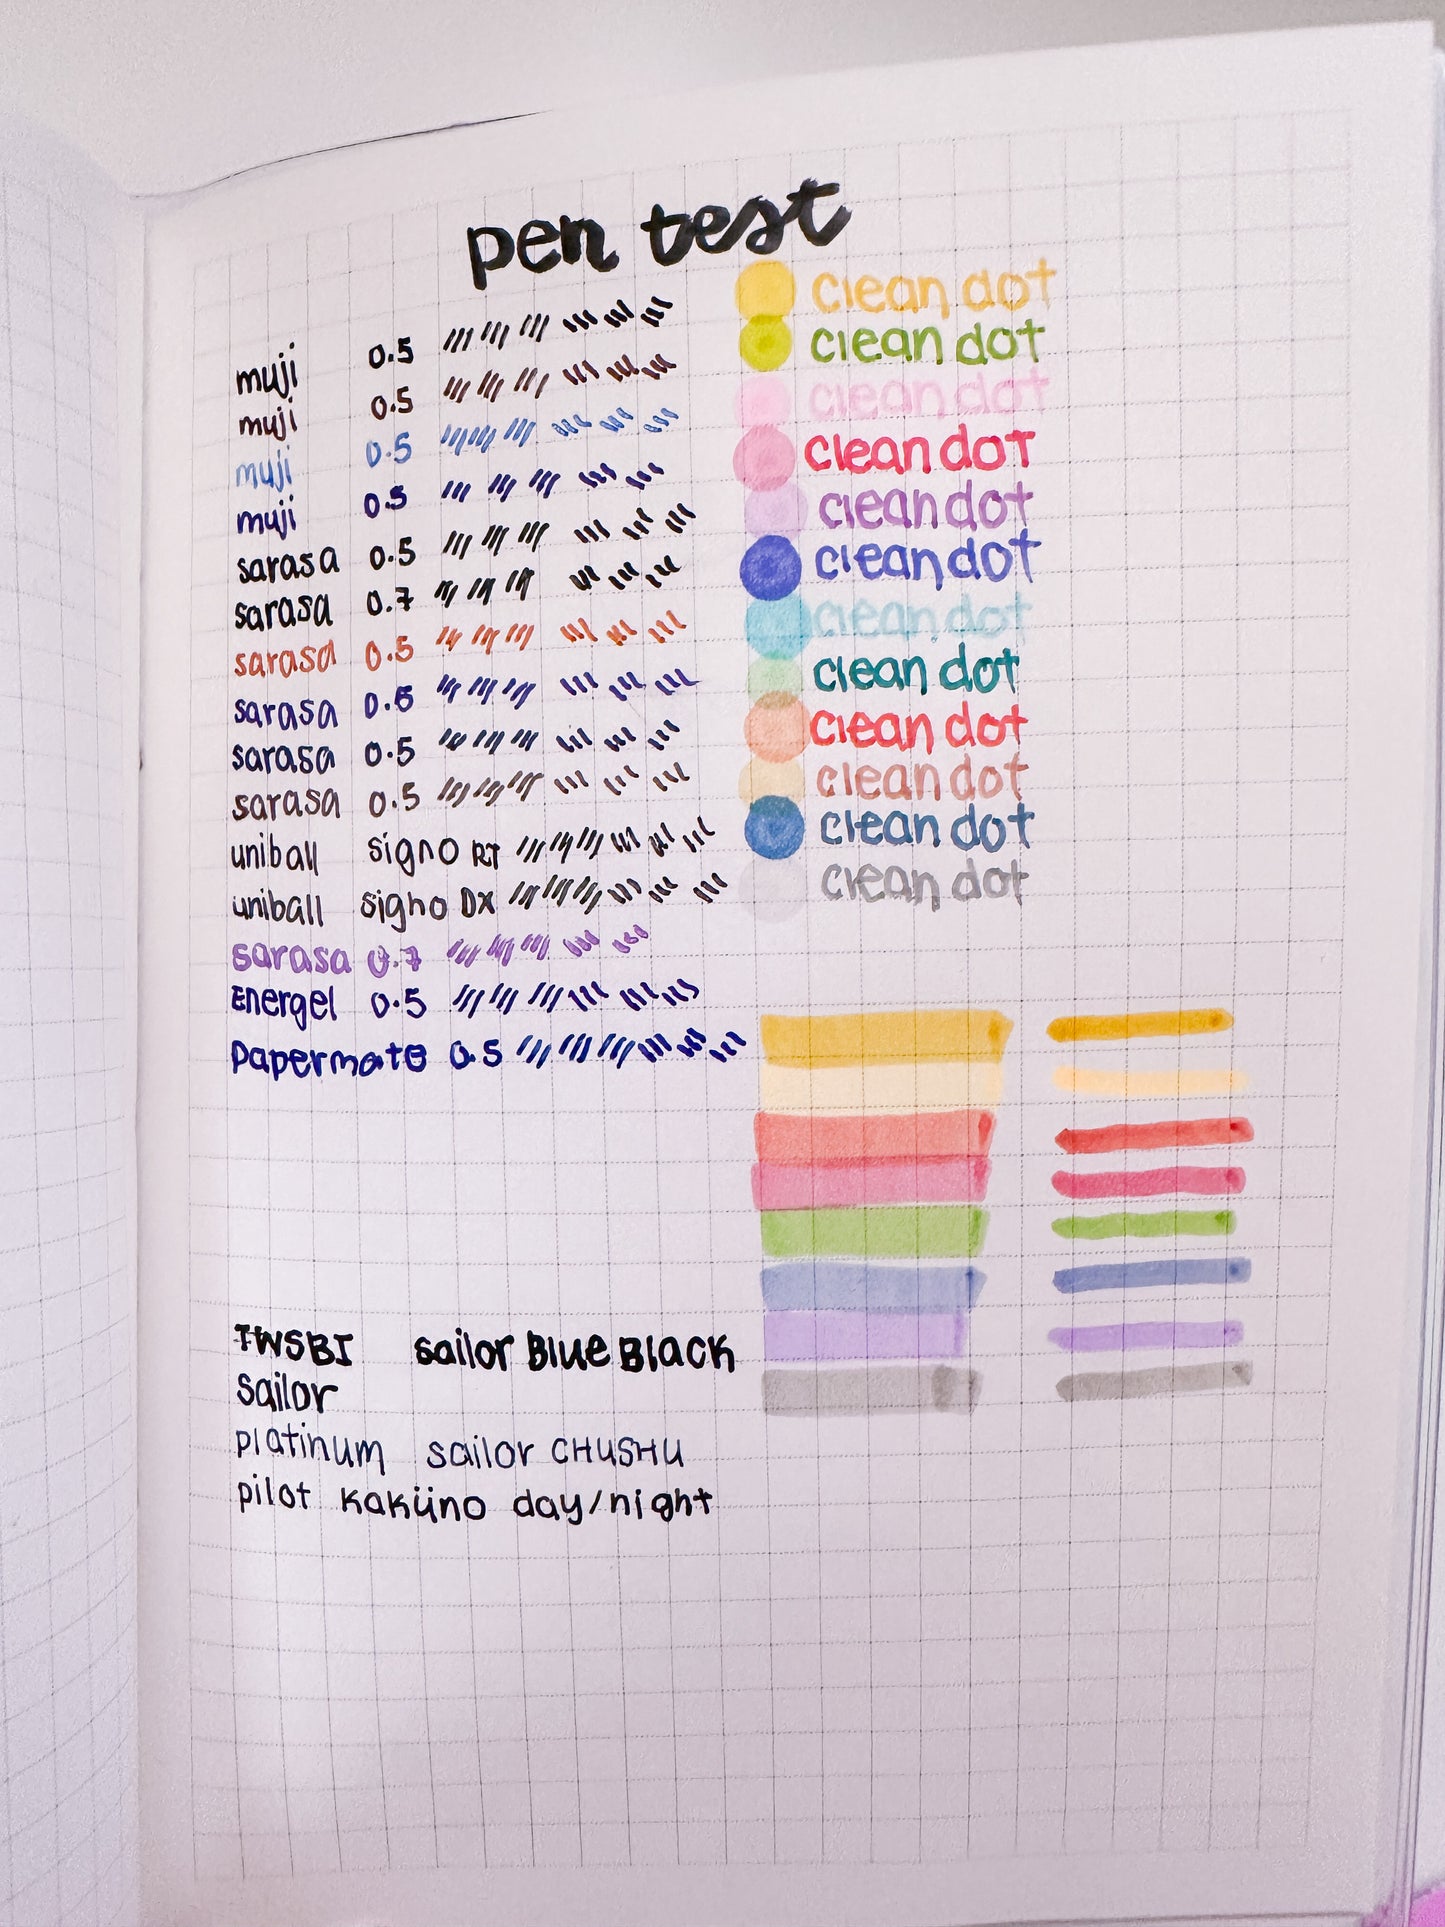 pen test
muji 0.5
muji 0.5
muji 0.5
muji 0.5
sarasa 0.5
sarasa 0.7
sarasa 0.5
sarasa 0.5
sarasa 0.5
sarasa 0.5
uniball signo RT
uniball signo DX
sarasa 0.7
Energel 0.5
papermate 0.5
TWSBI sailor Blue Black
Sailor
platinum sailor CHUSHU
pilot Kaküno day/night
clean dot
clean dot
clean dot
clean dot
clean dot
clean dot
clean dot
clean dot
clean dot
clean dot
clean dot
clean dot